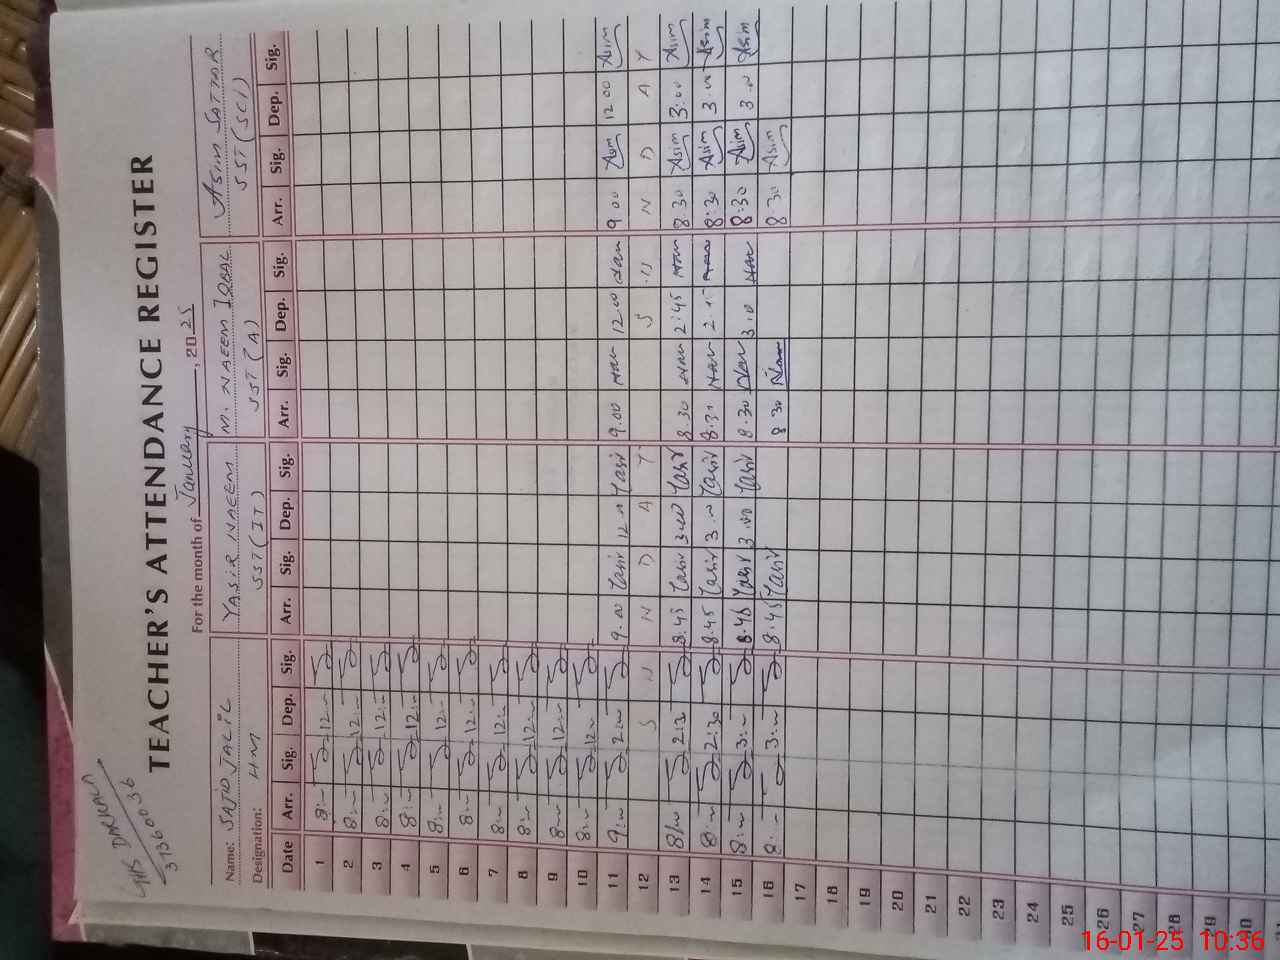 GHS DARKALI
37360036
TEACHER'S ATTENDANCE REGISTER
For the month of January, 2025
Name: SAJID JALIL YASIR NAEEM M. NAEEM IQBAL ASIM SATTAR
Designation: HM SST (IT) SST (A) SST (SCI)
Date Arr. Sig. Dep. Sig. Arr. Sig. Dep. Sig. Arr. Sig. Dep. Sig. Arr. Sig. Dep. Sig.
1 8:00 12:00
2 8:00 12:00
3 8:00 12:00
4 8:00 12:00
5 8:00 12:00
6 8:00 12:00
7 8:00 12:00
8 8:00 12:00
9 8:00 12:00
10 8:00 12:00
11 9:00 2:00 9:00 Yasir 12:00 Yasir 9:00 12:00 9:00 Asim 12:00 Asim
12 S U N D A Y S U N D A Y
13 8:00 2:30 8:45 Yasir 3:00 Yasir 8:30 2:45 8:30 Asim 3:00 Asim
14 8:00 2:30 8:45 Yasir 3:00 Yasir 8:30 8:30 Asim 3:00 Asim
15 8:00 3:00 8:45 Yasir 3:00 Yasir 8:30 3:0 8:30 Asim 3:00 Asim
16 8:00 3:00 8:45 Yasir 8:30 8:30 Asim
17
18
19
20
21
22
23
24
25
26
27
28
29
30
16-01-25 10:36